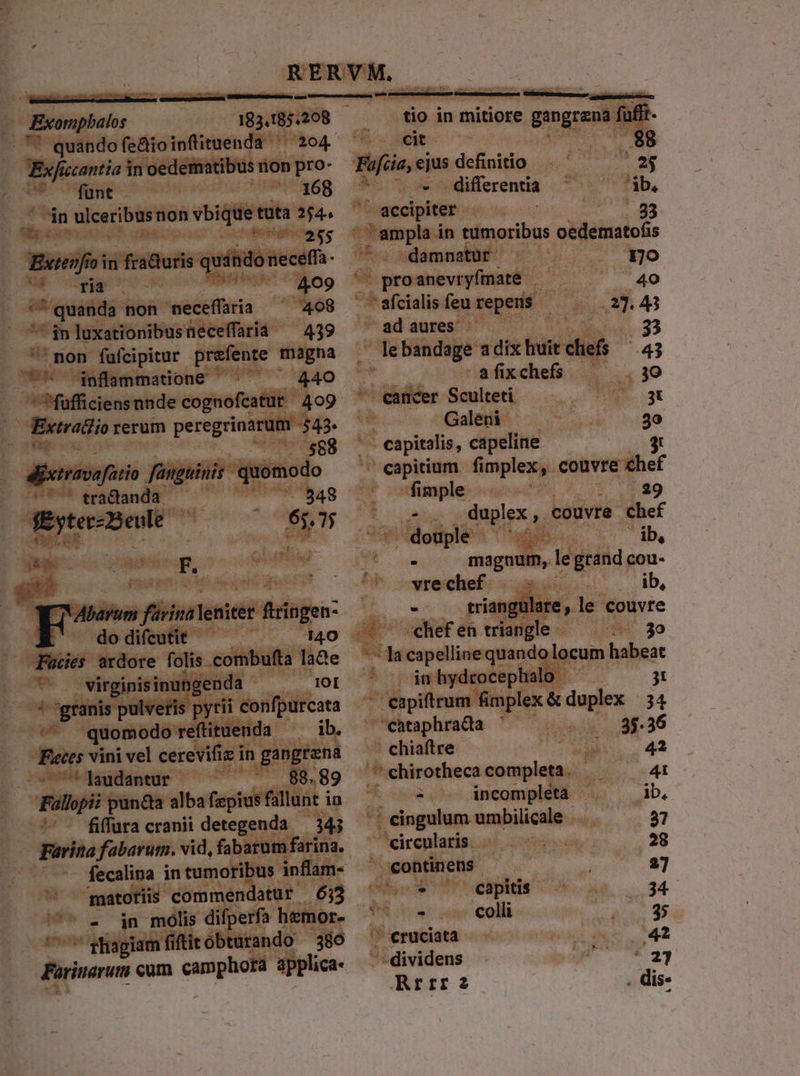 RERVM.
Exomphalos 183.185.208
quando ſectio inſtituenda 204
Exſiccantia in oedematibus non pro-
ſunt 168
in ulceribus non vbique tuta 254.
255
Extenſio in fracturis quando neceſſa-
ria 409
quanda non neceſſaria 408
in luxationibus neceſſaria 439
non ſuſcipitur præſente magna
inflammatione 440
ſufficiens nnde cognoſcatur 409
Extractio rerum peregrinarum 543.
588
Extravaſatio ſanguinis quomodo
tractanda 348
Eyter-Beule 65.75
F.
FAbarum farina leniter ſtringen-
do diſcutit 140
Facies ardore ſolis combuſta lacte
virginis inungenda 101
granis pulveris pyrii conſpurcata
quomodo reſtituenda ib.
Fæces vini vel cereviſiæ in gangræna
laudantur 88. 89
Fallopii puncta alba ſæpius fallunt in
fiſſura cranii detegenda 343
Farina fabarum. vid, fabarum farina.
ſecalina in tumoribus inflam-
matoriis commendatur 633
- in molis diſperſa hæmor-
rhagiam ſiſtit obturando 380
Farinarum cum camphora applica-
tio in mitiore gangræna ſuffi-
cit 88
Faſcia, ejus definitio 25
- differentia ib.
accipiter 33
ampla in tumoribus oedematoſis
damnatur 170
pro anevryſmate 40
aſcialis ſeu repens 27. 43
ad aures 33
le bandage a dix huit chefs 43
a ſix chefs 30
cancer Sculteti 31
Galeni 30
capitalis, capeline 31
capitium ſimplex, couvre chef
ſimple 29
- duplex, couvre chef
douple ib,
- magnum, le grand cou-
vrechef ib,
- triangulare, le couvre
chef en triangle 30
la capelline quando locum habeat
in hydrocephalo 31
capiſtrum ſimplex & duplex 34
cataphracta 35.36
chiaſtre 42
chirotheca completa. 41
- incompleta ib,
cingulum umbilicale 37
circularis 28
continens 27
- capitis 34
- colli 35
cruciata 42
dividens 27
Rrrr 2 dis-